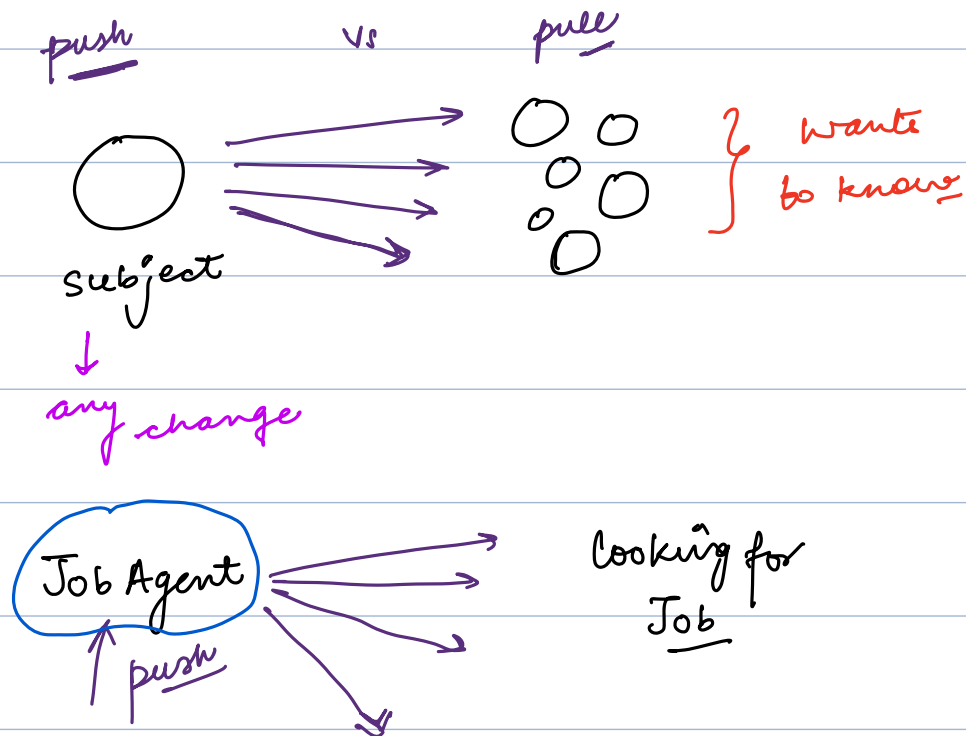 push vs pull
wants
to know
subject
any change
Job Agent
Looking for
Job
push